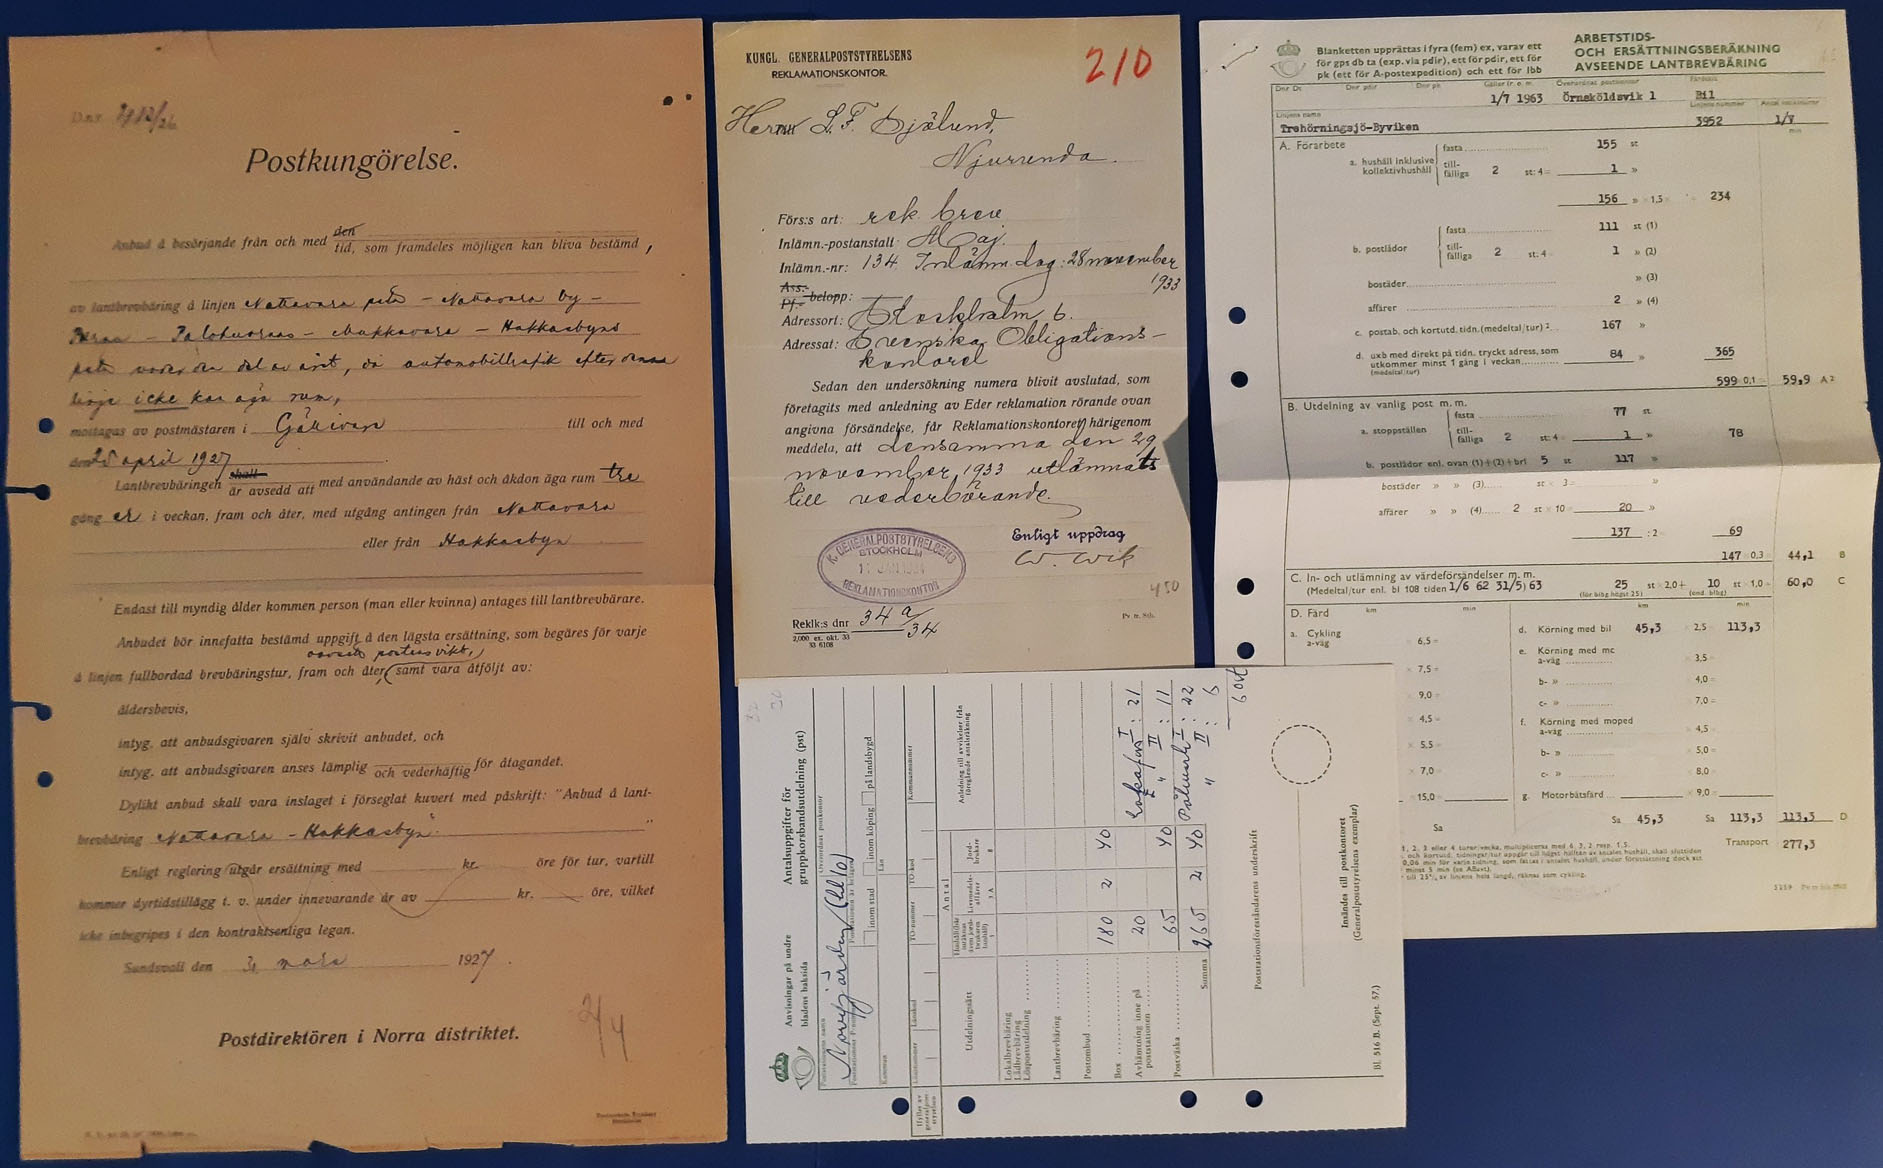 D.nr
Postkungörelse.
Anbud å besörjande från och med den
tid, som framdeles möjligen kan bliva bestämd,
av lantbrevbäring å linjen Nattavara pst - Nattavara by -
- Mukkavara - Hakkasbyns
pst under den del av året, då automobiltrafik efter denna
linje icke kan äga rum,
mottages av postmästaren i Gällivare till och med
den 25 april 1927.
Lantbrevbäringen skall
är avsedd att med användande av häst och åkdon äga rum tre
gång er i veckan, fram och åter, med utgång antingen från Nattavara
eller från Hakkasbyn
Endast till myndig ålder kommen person (man eller kvinna) antages till lantbrevbärare.
Anbudet bör innefatta bestämd uppgift å den lägsta ersättning, som begäres för varje
oavsett postens vikt,
å linjen fullbordad brevbäringstur, fram och åter, samt vara åtföljt av:
åldersbevis,
intyg, att anbudsgivaren själv skrivit anbudet, och
intyg, att anbudsgivaren anses lämplig och vederhäftig för åtagandet.
Dylikt anbud skall vara inslaget i förseglat kuvert med påskrift: "Anbud å lant-
brevbäring Nattavara - Hakkasbyn"
Enligt reglering utgår ersättning med kr. öre för tur, vartill
kommer dyrtidstillägg t. v. under innevarande år av kr. öre, vilket
icke inbegripes i den kontraktsenliga legan.
Sundsvall den 31 mars 1927.
Postdirektören i Norra distriktet.
KUNGL. GENERALPOSTSTYRELSENS
REKLAMATIONSKONTOR.
210
Herr L. F. Sjölund,
Njurunda.
Förs:s art: rek. brev
Inlämn.-postanstalt: Maj.
Inlämn.-nr: 134. Inlämn. dag: 28 november
1933
Ass.-
Pf.- belopp:
Adressort: Stockholm 6.
Adressat: Svenska Obligations-
kontoret
Sedan den undersökning numera blivit avslutad, som
företagits med anledning av Eder reklamation rörande ovan
angivna försändelse, får Reklamationskontoret härigenom
meddela, att densamma den 29
november 1933 utlämnats
till vederbörande.
Enligt uppdrag
W. Wik
K. GENERALPOSTSTYRELSENS
STOCKHOLM
11 JAN 1934
REKLAMATIONSKONTOR
450
Reklk:s dnr 34 a/34
2,000 ex. okt. 33
33 6108
Blanketten upprättas i fyra (fem) ex, varav ett
för gps db ta (exp. via pdir), ett för pdir, ett för
pk (ett för A-postexpedition) och ett för lbb
ARBETSTIDS-
OCH ERSÄTTNINGSBERÄKNING
AVSEENDE LANTBREVBÄRING
Dnr Ds Dnr pdir Dnr pk Gäller fr. o. m. Överordnat postkontor Färdsätt
1/7 1963 Örnsköldsvik 1 Bil
Linjens namn Linjens nummer
Trehörningsjö-Byviken 3952 1/7
min
A. Förarbete
a. hushåll inklusive kollektivhushåll
fasta 155 st
till-fälliga 2 st: 4 = 1 »
156 » × 1,5 = 234
b. postlådor
fasta 111 st (1)
till-fälliga 2 st: 4 = 1 » (2)
bostäder » (3)
affärer 2 » (4)
c. postab. och kortutd. tidn. (medeltal/tur) 167 »
d. uxb med direkt på tidn. tryckt adress, som
utkommer minst 1 gång i veckan 84 » 365
(medeltal/tur)
599 × 0,1 = 59,9 A
B. Utdelning av vanlig post m. m.
a. stoppställen
fasta 77 st
till-fälliga 2 st: 4 = 1 » 78
b. postlådor enl. ovan (1)+(2)+brl 5 st 117 »
bostäder » » (3) st × 3 = »
affärer » » (4) 2 st × 10 = 20 »
137 : 2 = 69
147 × 0,3 = 44,1 B
C. In- och utlämning av värdeförsändelser m. m.
(Medeltal/tur enl. bl 108 tiden 1/6 62 31/5) 63 25 st × 2,0 + 10 st × 1,0 = 60,0 C
(för bibg högst 25) (ond. bibg)
D. Färd
km min km min
a. Cykling
a-väg × 6,5 =
× 7,5 =
× 9,0 =
× 4,5 =
× 5,5 =
× 7,0 =
× 15,0 =
Sa
d. Körning med bil 45,3 × 2,5 = 113,3
e. Körning med mc
a-väg × 3,5 =
b- » × 4,0 =
c- » × 7,0 =
f. Körning med moped
a-väg × 4,5 =
b- » × 5,0 =
c- » × 8,0 =
g. Motorbåtsfärd × 9,0 =
Sa 45,3 Sa 113,3 113,3 D
Transport 277,3
Anvisningar på undre
bladens baksida
Antalsuppgifter för
gruppkorsbandsutdelning (pst)
Poststationens namn
Överordnat postkontor
Kommun
Län
inom stad
inom köping
på landsbygd
Ifylles av
generalpost-
styrelsen
Länsnummer
Länskod
TO-nummer
TO-kod
Kommunnummer
Utdelningssätt
Antal
Livsmedels-
affärer
Jord-
brukare
Anledning till avvikelser från
föregående antalsräkning
Lokalbrevbäring
Lådbrevbäring
Lösposturdelning
Lantbrevbäring
Postombud 180 2 40
Box 20
Avhämtning inne på
poststationen 65 40
Postväska
Summa 265 2 40
I : 21
" II : 11
I : 22
" II : 6
60st
Poststationsföreståndarens underskrift
Insändes till postkontoret
(Generalpoststyrelsens exemplar)
Bl. 516 B. (Sept. 57.)